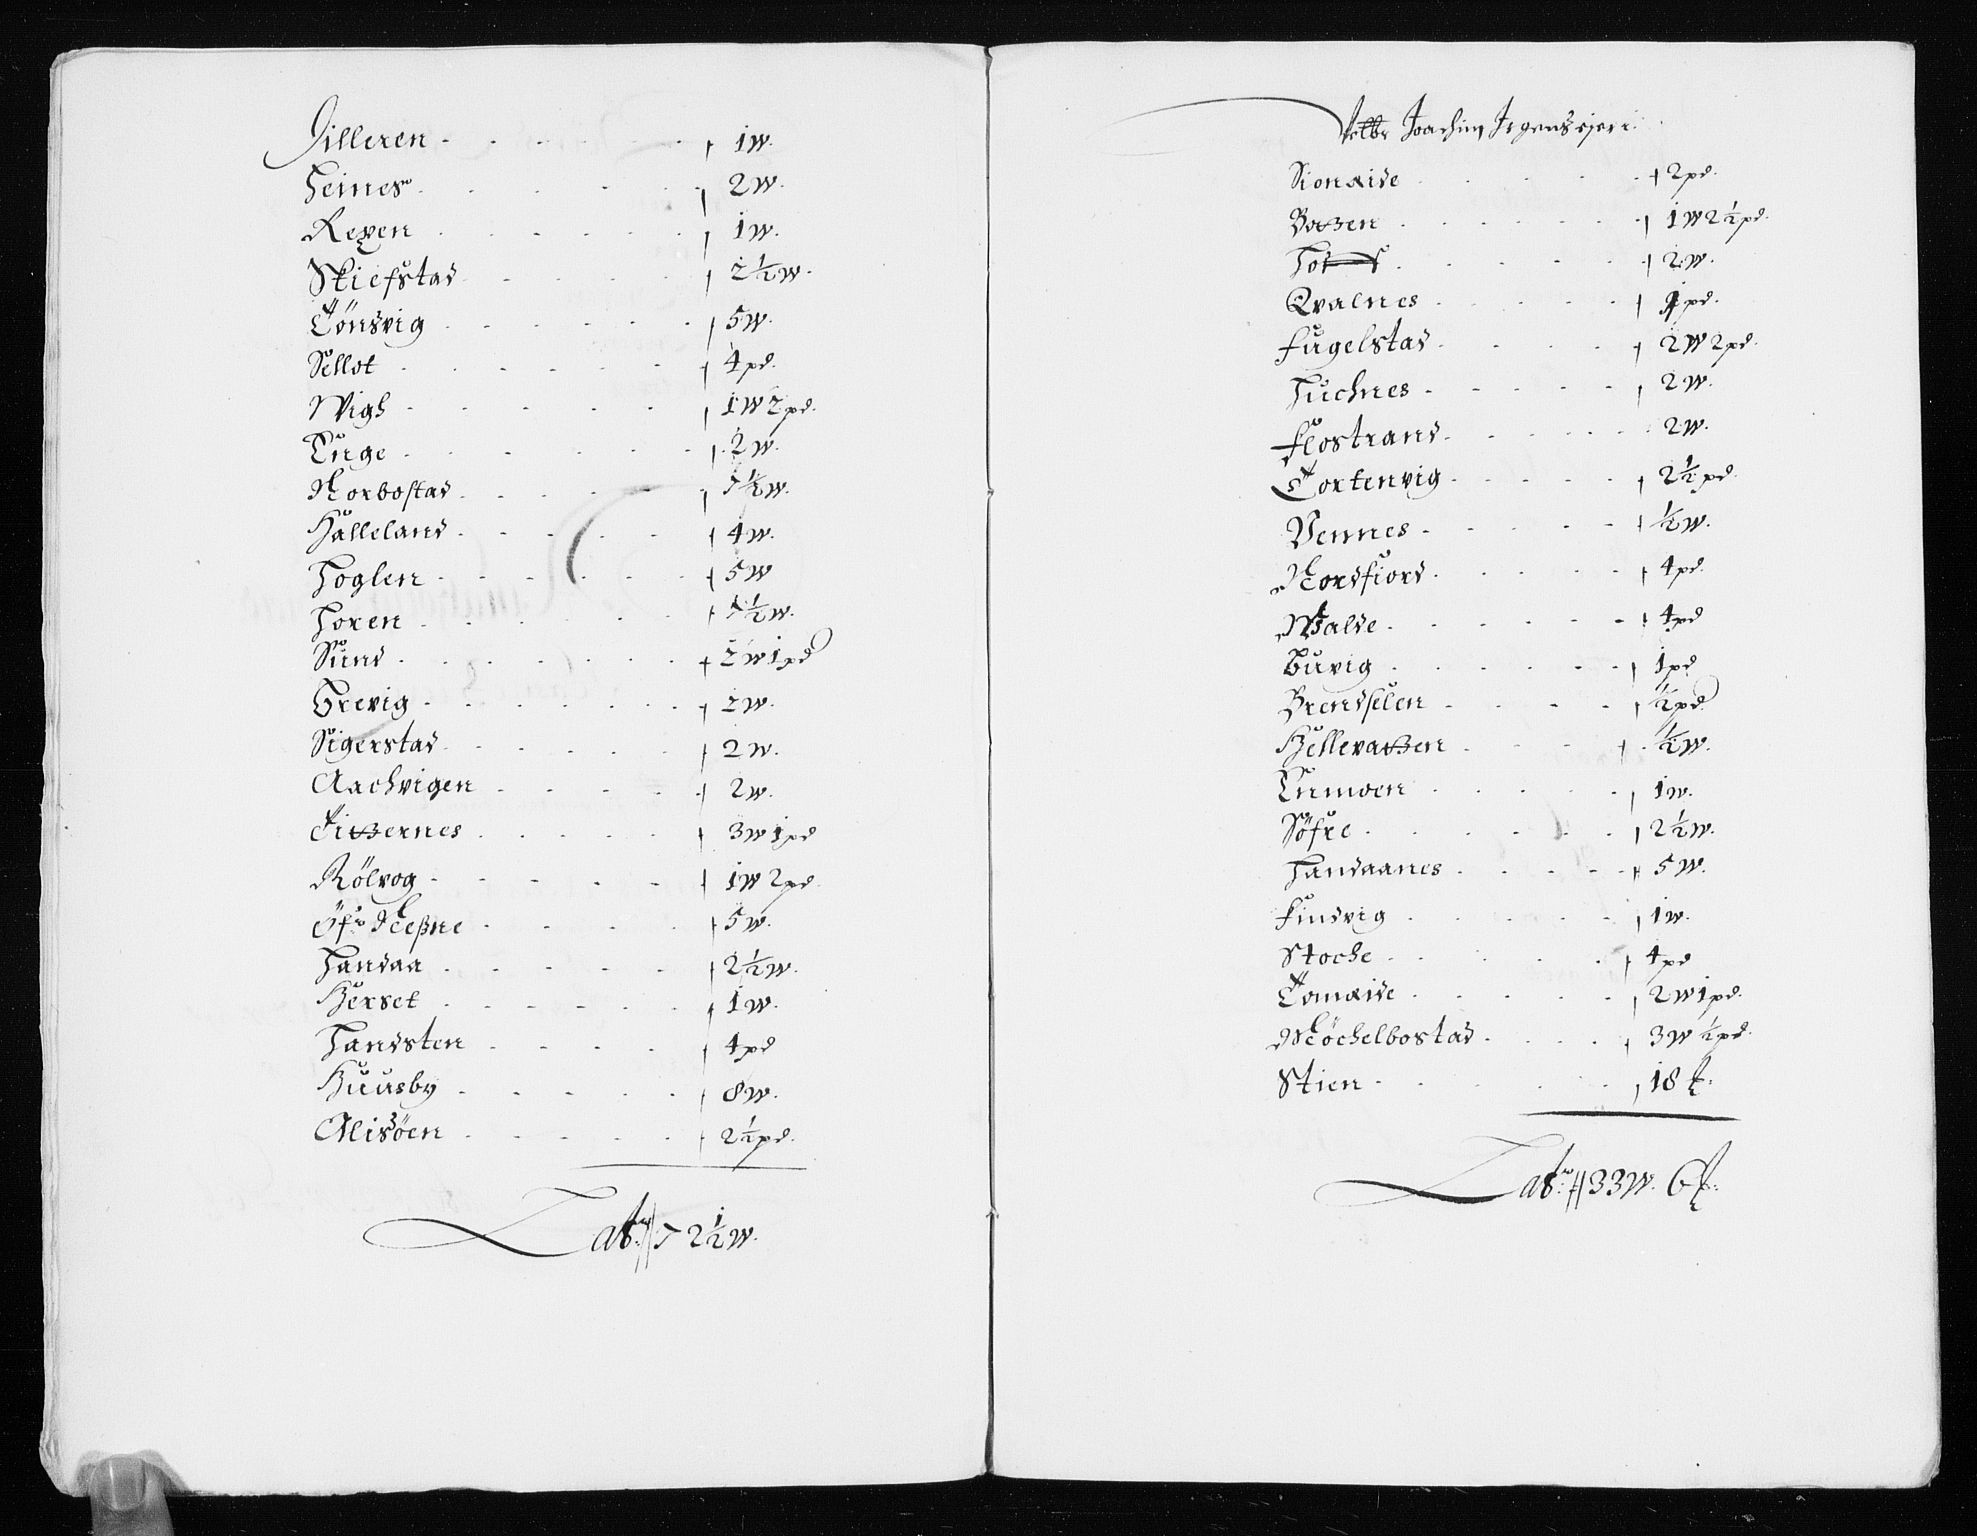 Jilleren 1 w.
Heines 2 w.
Reyen 1 w.
Skiefstad 2½ w.
Tönsvig 5 w.
Sellot 4 pd.
Wigh 1 w 2 pd.
Enge 2 w.
Norbostad 1½ w.
Halleland 4 w.
Hoglen 5 w
Horen 1½ w.
Sund 2 w 1 pd
Brevig 2 w.
Sigerstad 2 w.
Aachvigen 2 w.
Titzernes 3 w 1 pd
Rölvog 1 w 2 pd.
Öfr Neßne 5 w.
Handaa 2½ w.
Herset 1 w.
Handsten 4 pd
Huusby 8 w.
Alisöen 2½ pd.
Latr 72½ w.
Joachim Irgens ejer
Sionæide 2 pd.
Batzen 1 w 2½ pd.
2 w.
Qvalnes pd.
Fugelstad 2 w 2 pd.
Huchnes 2 w.
Flostrand 2 w.
Tortenvig 2½ pd.
Vennes ½ w.
Nordfiord 4 pd.
Walde 4 pd
Buvig 1 pd
Brendselen ½ pd
Hellevatzen ½ w.
Enmoen 1 w.
Söfre 2½ w.
Handaanes 5 w.
Findvig 1 w.
Stoche 4 pd
Tomæide 2 w 1 pd.
Möchelbostad 3 w ½ pd.
Stien 18 ℔.
Latr 33 w. 6 ℔.